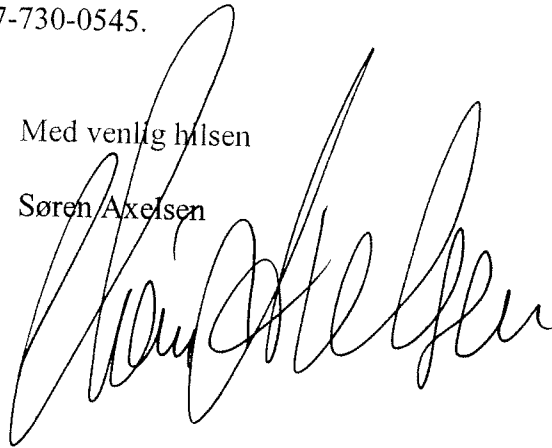 7-730-0545.
Med venlig hilsen
Søren Axelsen